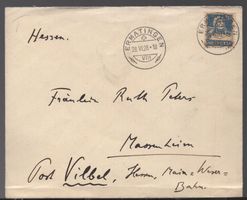 Hessen.
ERMATINGEN
28.VI.28.-18
VIII
Fräulein Ruth Peters
Massenheim
Post Vilbel, Hessen, Main=Weser=
Bahn.